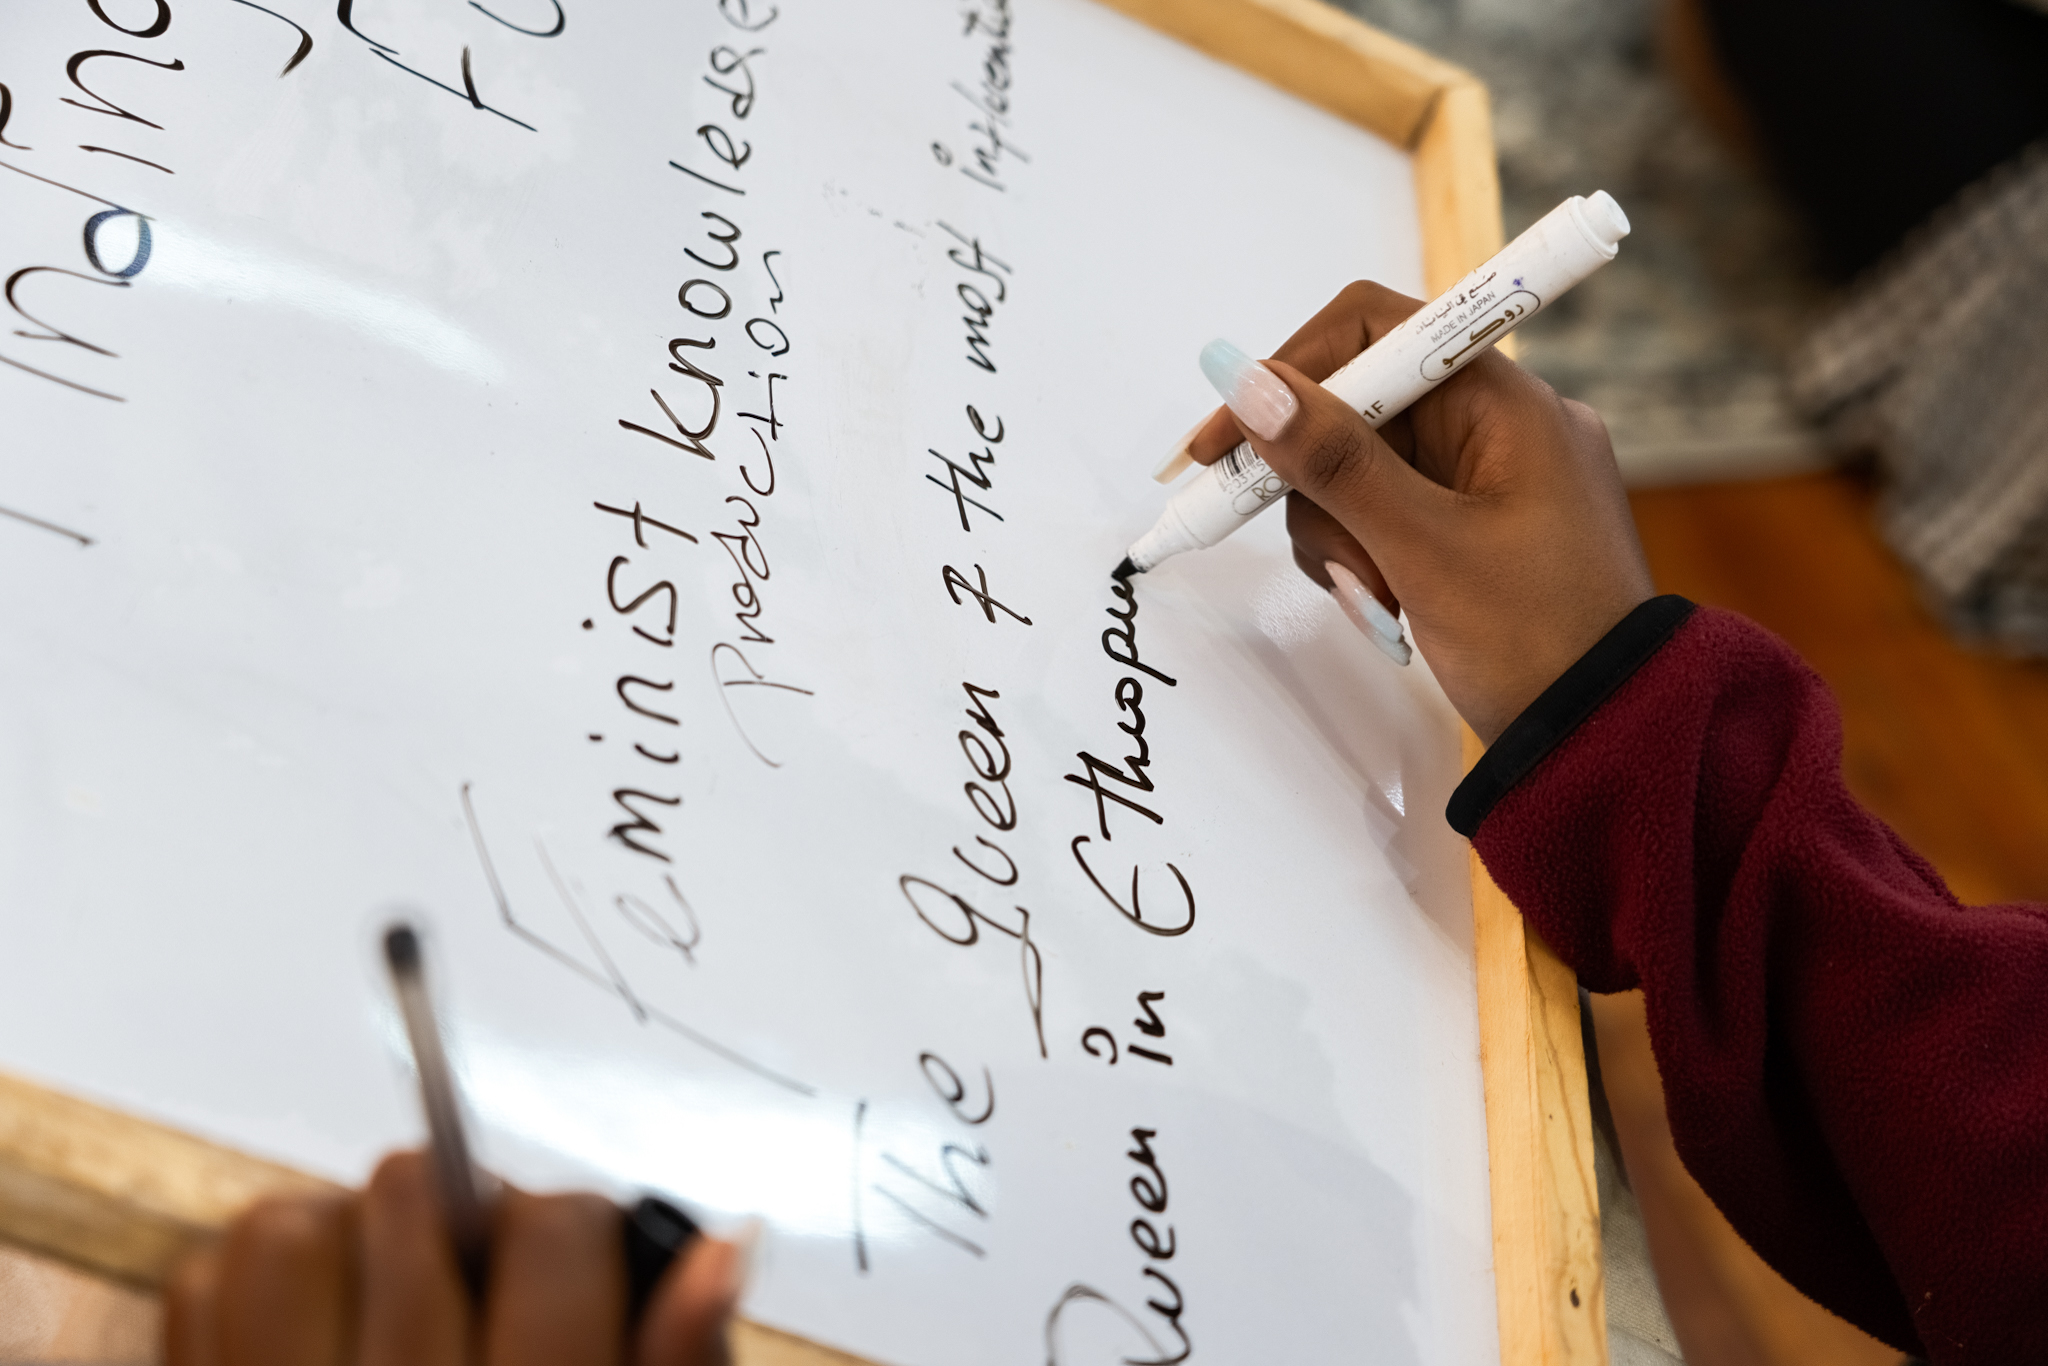 Finding
Fu
Feminist Knowledge
Production
The Queen & the most influenti
Queen in Ethiopia
صنع في اليابان
MADE IN JAPAN
روكو